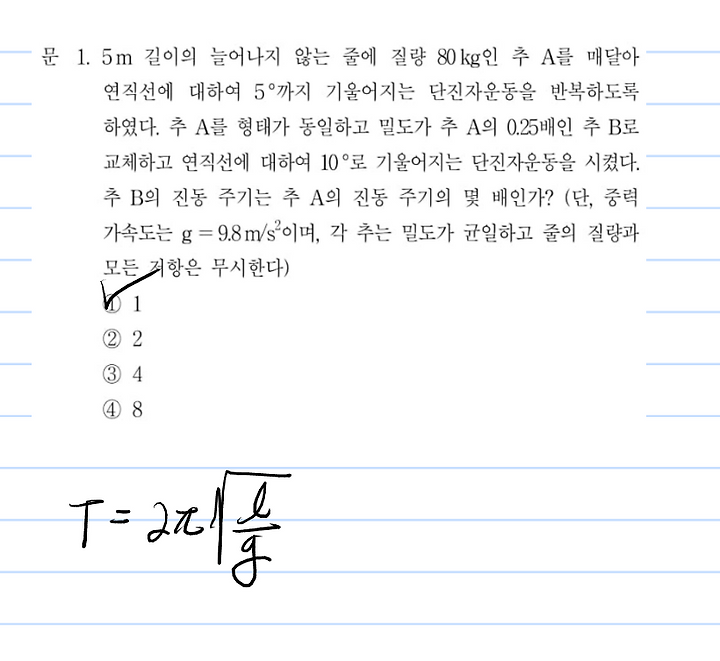 문 1. 5m 길이의 늘어나지 않는 줄에 질량 80kg인 추 A를 매달아
연직선에 대하여 5°까지 기울어지는 단진자운동을 반복하도록
하였다. 추 A를 형태가 동일하고 밀도가 추 A의 0.25배인 추 B로
교체하고 연직선에 대하여 10°로 기울어지는 단진자운동을 시켰다.
추 B의 진동 주기는 추 A의 진동 주기의 몇 배인가? (단, 중력
가속도는 g = 9.8m/s²이며, 각 추는 밀도가 균일하고 줄의 질량과
모든 저항은 무시한다)
① 1
② 2
③ 4
④ 8
T = 2π√(l/g)